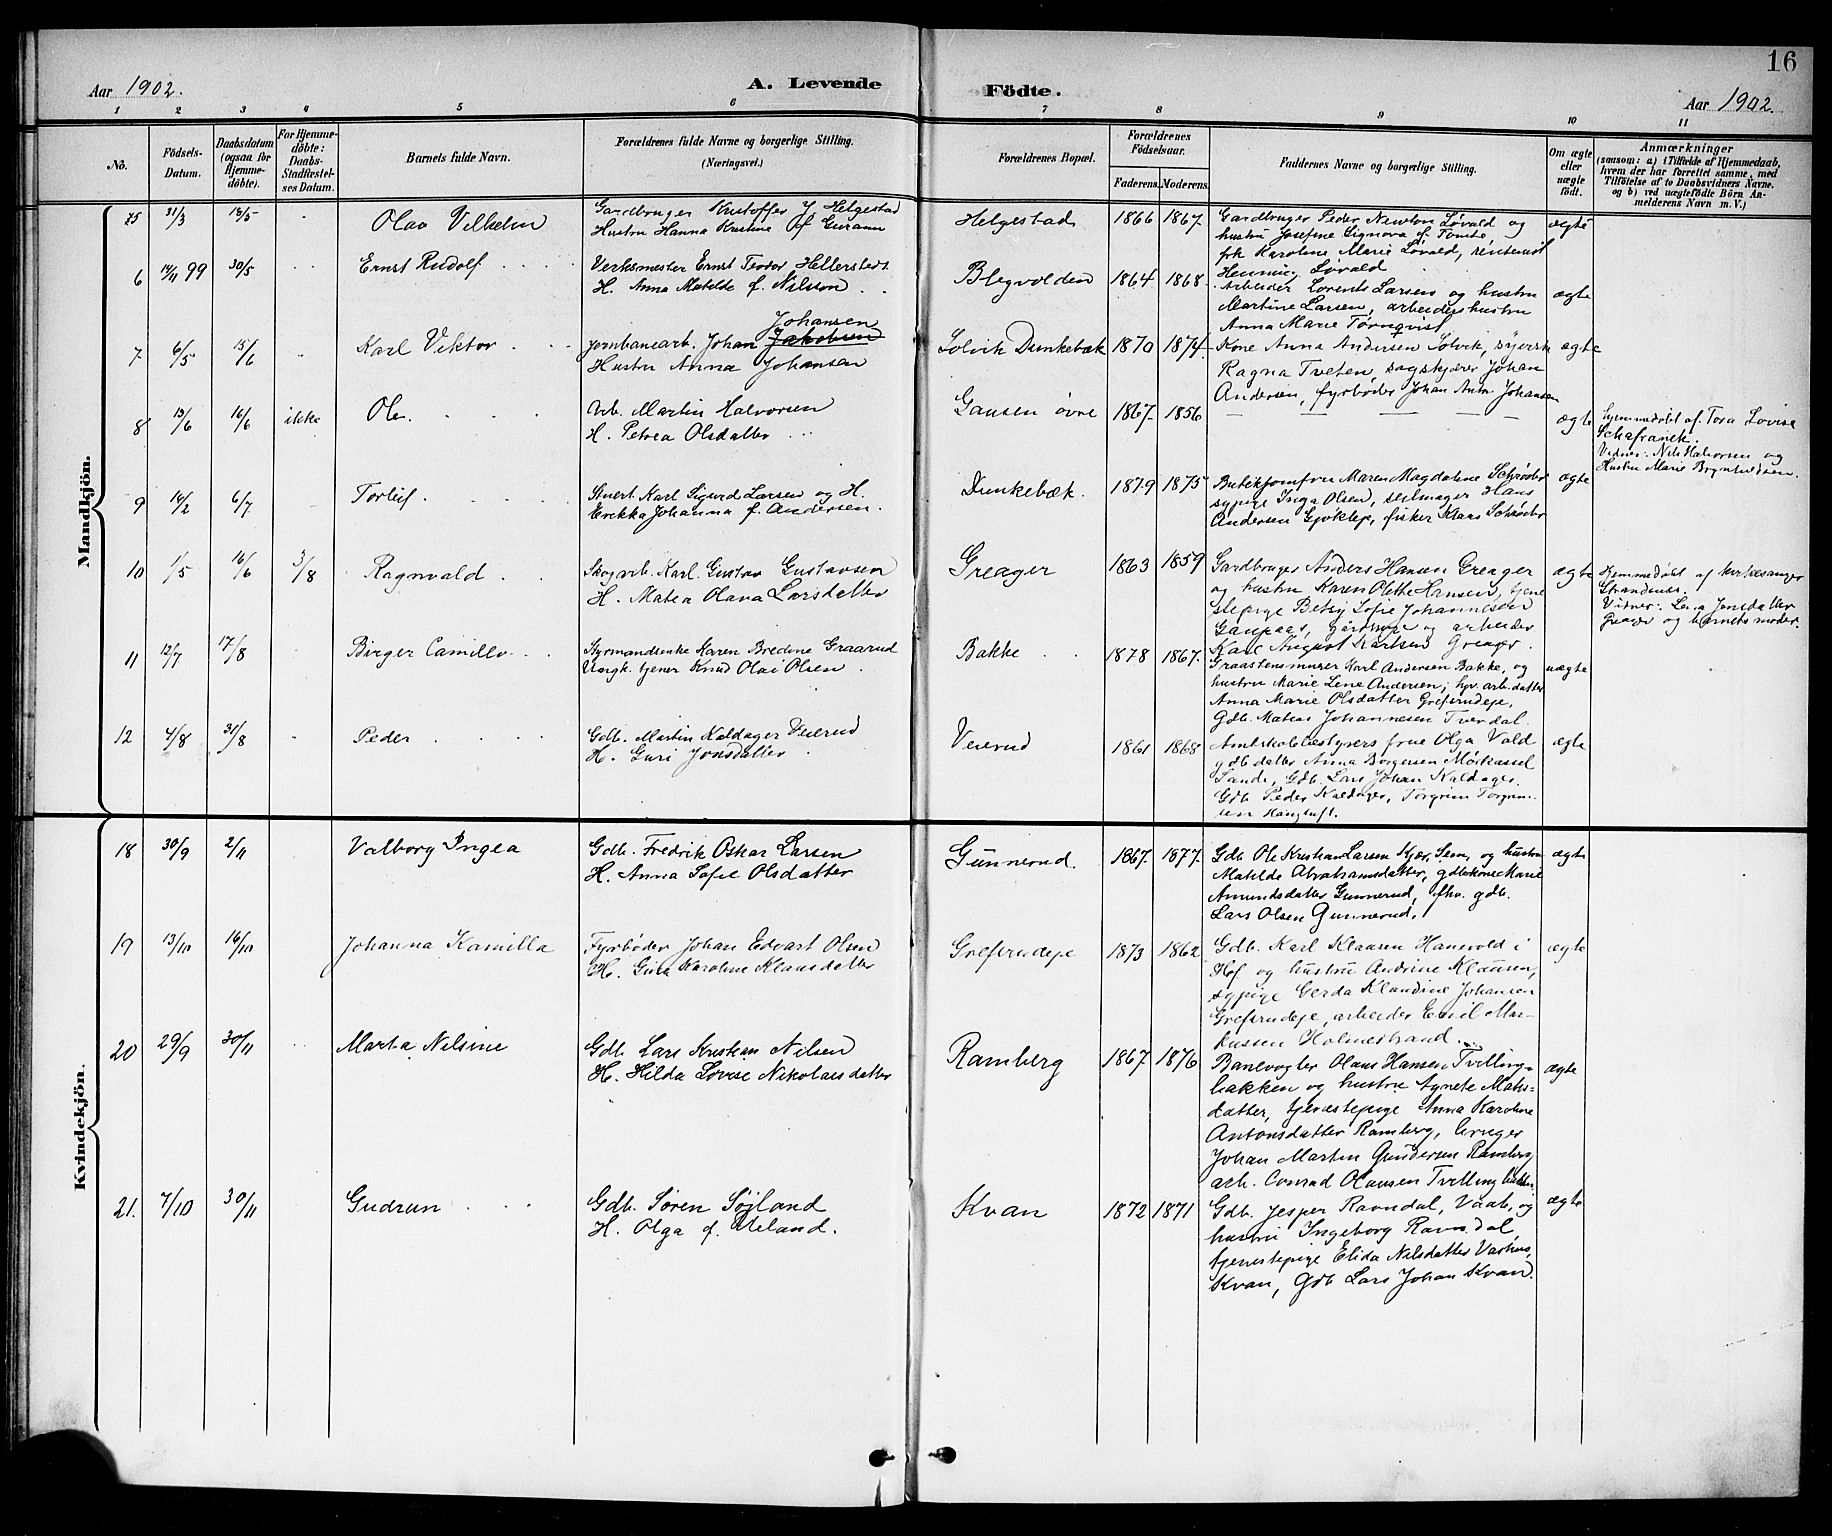 16
Aar 1902.
A. Levende
Födte.
Aar 1902.
1 2 3 4 5 6 7 8 9 10 11
No.
Födsels-
Datum.
Daabsdatum
(ogsaa for
Hjemme-
döbte).
For Hjemme-
döbte:
Daabs-
Stadfæstel-
ses Datum.
Barnets fulde Navn.
Forældrenes fulde Navne og borgerlige Stilling.
(Næringsvei.)
Forældrenes Bopæl.
Forældrenes
Födselsaar.
Faderens. Moderens.
Faddernes Navne og borgerlige Stilling.
Om ægte
eller
uægte
födt.
Anmærkninger
(saasom: a) i Tilfælde af Hjemmedaab,
hvem der har forrettet samme, med
Tilföielse af to Daabsvidners Navne.
og b) ved uægtefödte Börn An-
melderens Navn m. V.)
Mandkjön.
75 31/3 18/5 Olav Vilhelm
Gardbruger Kristoffer J Helgestad
Hustru Hanna Kristine
Helgestad 1866 1867
Gardbruger Peder Newton Løvald og
hustru Josefine Signora f. Tomte
frk Karoline Marie Løvald,
Henning Løvald
ægte
6 99 30/5 Ernst Rudolf
Verksmester Ernst Teodor Hellerstedt
H. Anna Matilde f. Nilsson
Blegvolden 1864 1868
Arbeider Lorents Larsen og hustru
Martine Larsen, arbeiderhustru
Anna Marie Tørnqvist
ægte
7 6/5 15/6 Karl Viktor
Jernbanearb. Johan Jakobsen
Johansen
Hustru Anna Johansen
Solvik Dunkebæk 1870 1874
Kone Anna Andersen Solvik, syerske
Ragna Tveten, sagskjærer Johan
Andersen, fyrbøder Johan Ant. Johansen
ægte
8 16/6 ikke Ole
Arb. Martin Halvorsen
H. Petrea Olsdatter
Gausen øvre 1867 1856
ægte
Hjemmedøbt af Tora Lovise
Schafranek.
Vidner: Nils Halvorsen og
Hustru Marie Bryntildsen.
9 6/7 Torleif
Stuert Karl Sigurd Larsen og H.
Erikka Johanna f. Andersen.
Dunkebæk. 1879 1875
Butikjomfru Maren Magdalene Schrøder
sypige Inga Olsen, seilmager Hans
Andersen Gjøklep, fisker Klaus Schrøder
ægte
10 1/5 16/6 3/8 Ragnvald
Skogarb. Karl Gustav Gustavsen
H. Matea Olava Larsdatter
Greager 1863 1859
Gardbruger Anders Hansen Greager
og hustru Karen Olette Hansen, tjene
stepige Betsy Sofie Johannesen
Gaupaas, og arbeider
Karl August Karlsen Greager.
ægte
Hjemmedøbt af kirkesanger
Strandenæs.
Vidner: Lena Jensdatter
Greager og barnets moder.
11 12/7 17/8 Birger Camillo
Styrmandenke Karen Bredine Graarud
Ungk. tjener Knud Olai Olsen
Bakke 1878 1867
Graastensmurer Karl Andersen Bakke, og
hustru Marie Lene Andersen, arb. datter
Anna Marie Olsdatter Grefsrudeje,
Gdb. Matias Johannesen Tverdal.
uægte
12 4/8 31/8 Peder
Gdb. Martin Kaldager Veierud
H. Guri Jonsdatter
Veierud 1861 1868
Amtskolebestyrers frue Olga Vold
gdb datter Anna Borgersen Mørkassel
Sande, Gdb. Lars Johan Kaldager
Gdb. Peder Kaldager, Torgrim Torgrim-
sen Haugtuft.
ægte
Kvindekjön.
18 30/9 2/11 Valborg Ingea
Gdb. Fredrik Oskar Larsen
H. Anna Sofie Olsdatter
Gunnerud. 1867 1877
Gdb Ole Kristian Larsen Kjær, Sem, og hustru
Matilde Abrahamsdatter, gdbkone Marie
Amundsdatter Gunnerud, fhv. gdb.
Lars Olsen Gunnerud.
ægte
19 13/10 16/10 Johanna Kamilla
Fyrbøder Johan Edvart Olsen
H. Gina Karoline Klausdatter
Grefsrudeje 1873 1862
Gdb. Karl Klausen Hanevold i
Hof og hustru Andrine Klausen,
sypige Gerda Klaudine Johansen
Grefsrudeje, arbeider Emil Mar-
kussen Holmestrand.
ægte
20 29/9 30/11 Marta Nilsine
Gdb. Lars Kristian Nilsen
H. Hilda Lovise Nikolaisdatter
Ramberg 1867 1876
Banevogter Olaus Hansen Tvilling-
bakken og hustru Agnete Mats-
datter, tjenestepige Anna Karoline
Antonsdatter Ramberg, bruger
Johan Martin Gundersen Ramberg
arb. Conrad Olausen Tvillingbakken
ægte
21. 7/10 30/11 Gudrun
Gdb. Søren Søiland
H. Olga f. Ueland.
Kvan 1872 1871
Gdb. Jesper Ravndal, Vaab, og
hustru Ingeborg Ravndal,
tjenestepige Elida Nilsdatter Vashus,
Kvan, Gdb Lars Johan Kvan.
ægte